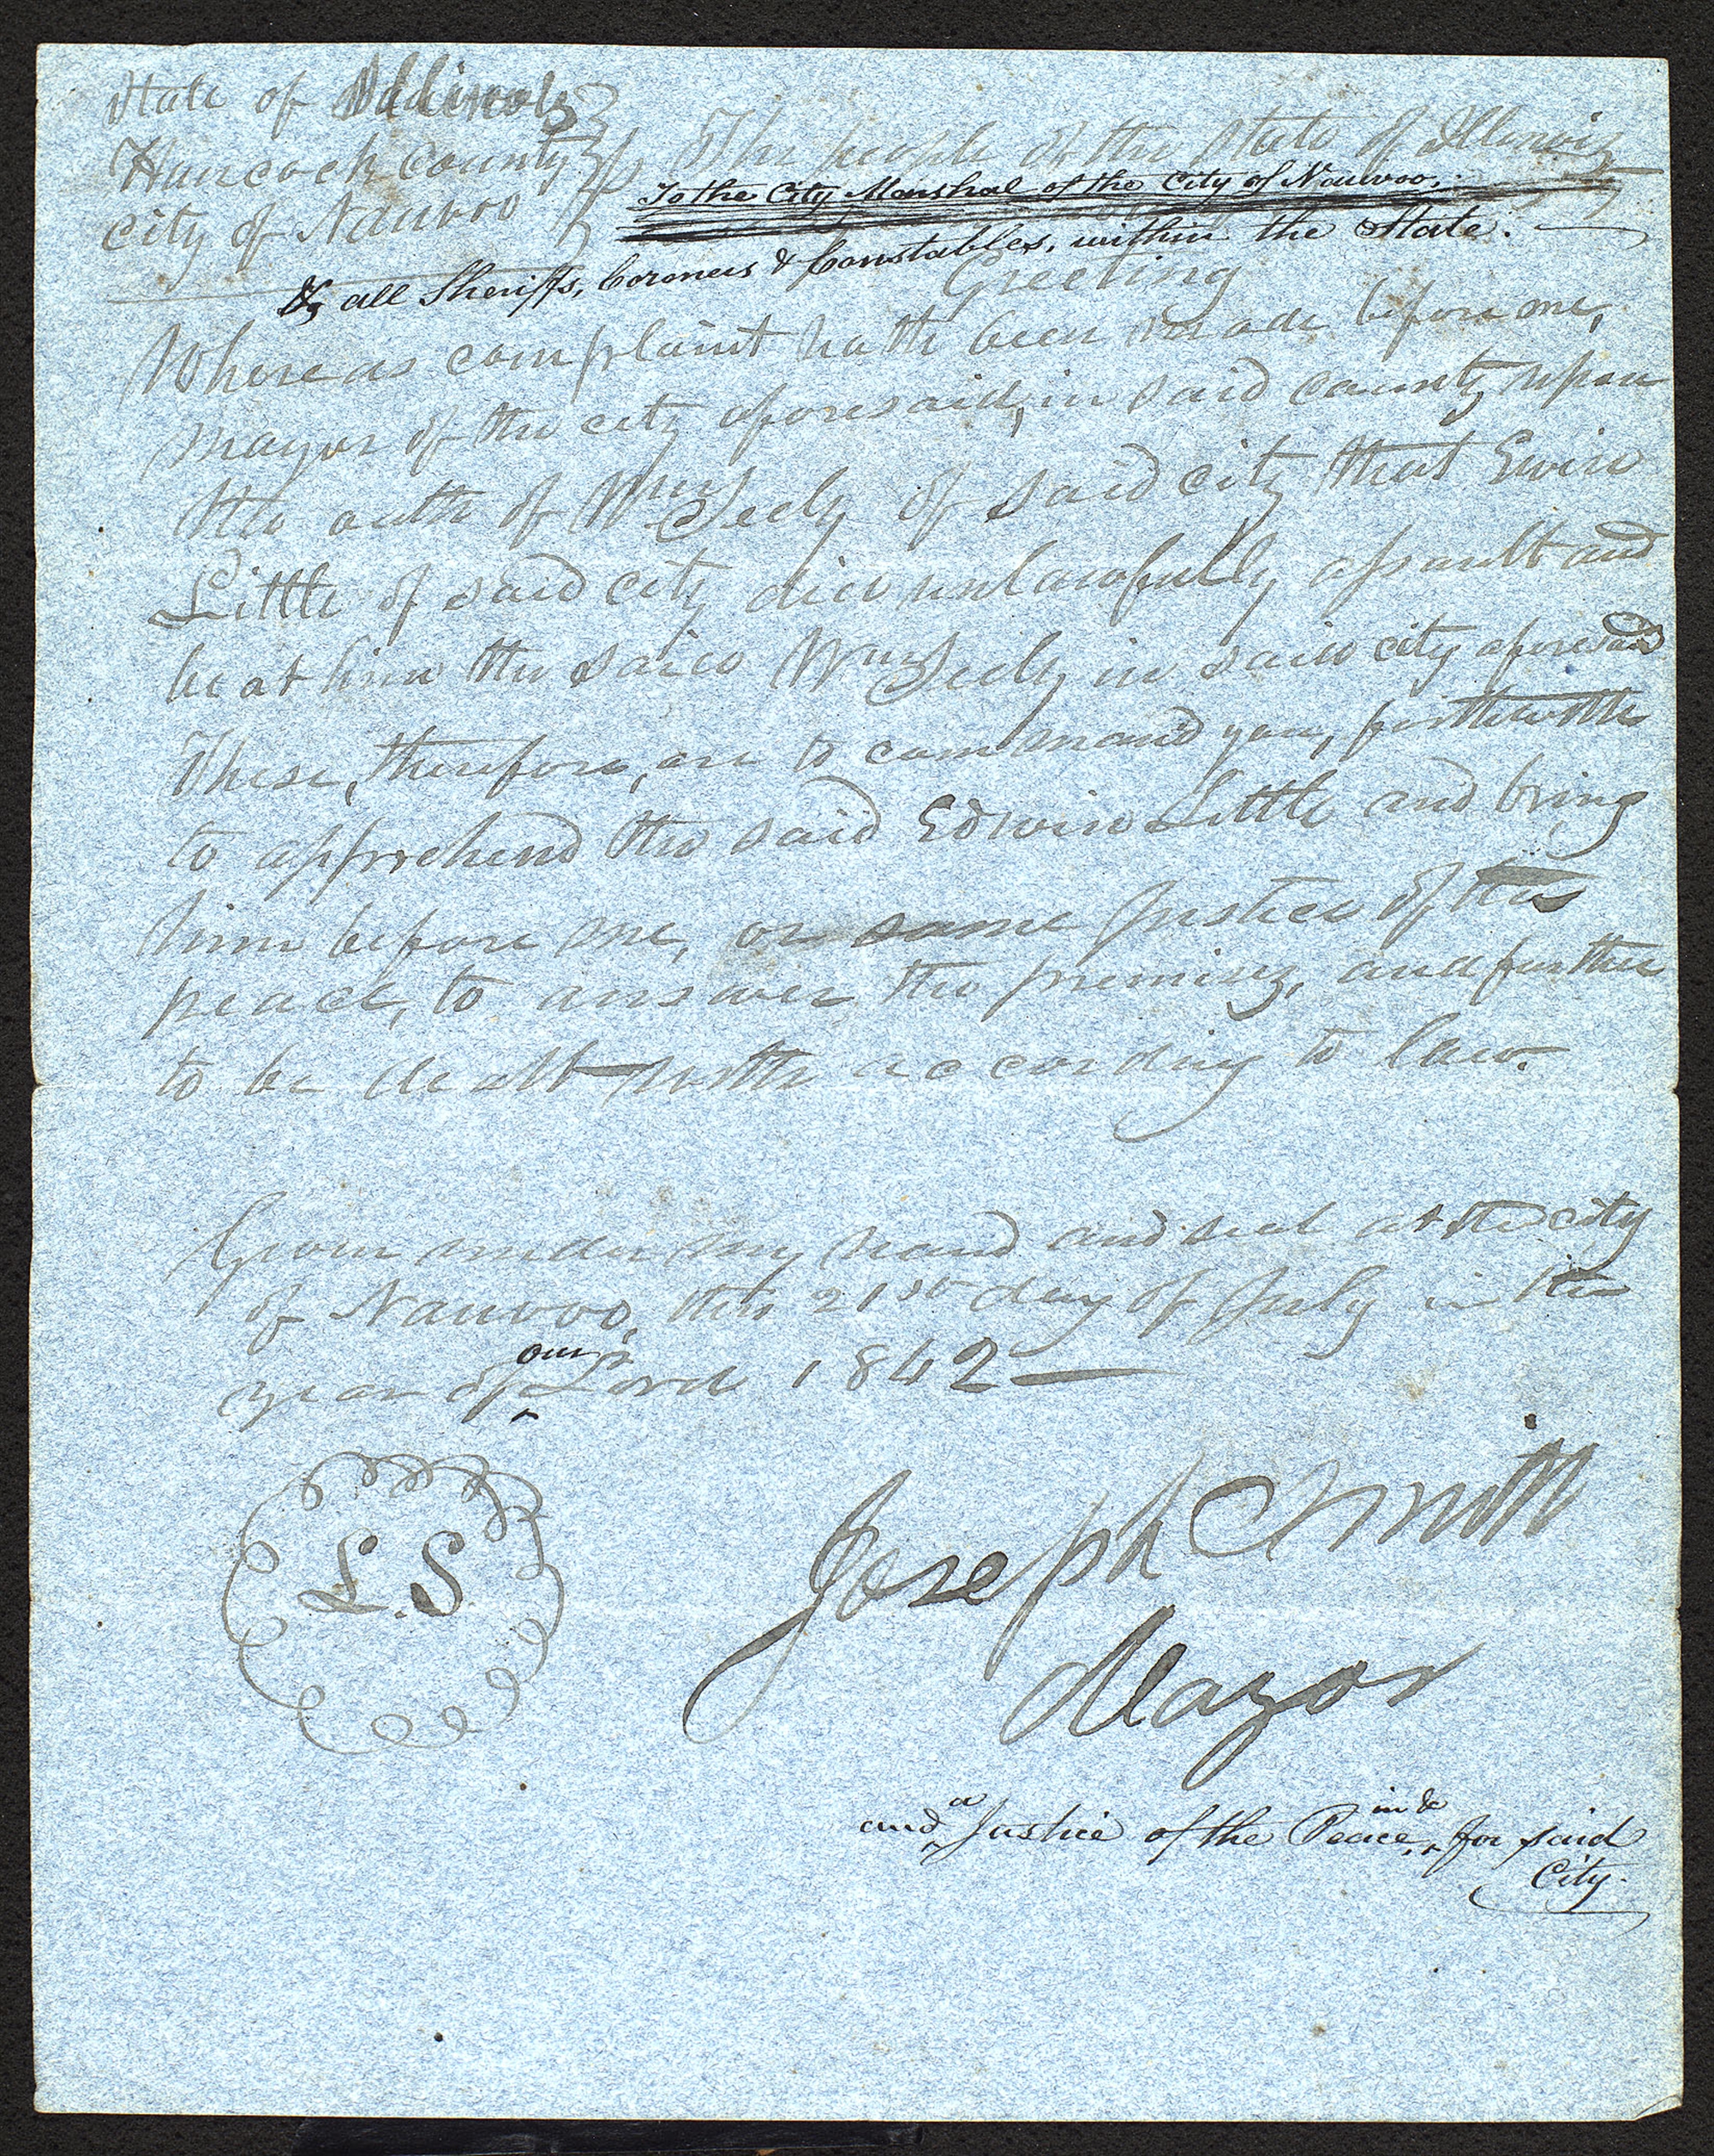 State of Illinois
Hancock County ss The people of the State of Illinois
City of Nauvoo
To the City Marshal of the City of Nauvoo,
& all Sheriffs, Coroners & Constables, within the State.
Greeting
Whereas complaint hath been made before me,
mayor of the city aforesaid, in said county upon
the oath of Wm Seely of said city that Ewin
Little of said city did unlawfully assault and
beat him the said Wm Seely in said city aforesaid
These, therefore, are to command you, forthwith
to apprehend the said Edwin Little and bring
him before me, or some Justice of the
peace, to answer the premises, and further
to be dealt with according to law.
Given under my hand and seal at the city
of Nauvoo, this 21st day of July in the
year of our Lord 1842
L.S.
Joseph Smith
Mayor
and a Justice of the Peace, in & for said
City.